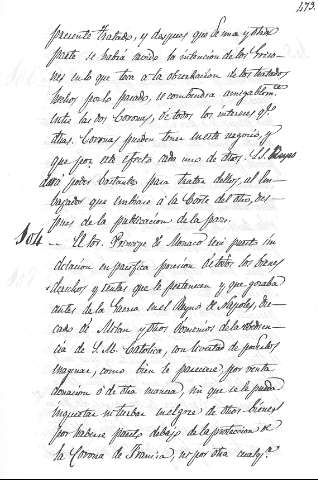 473.
presente tratado, y despues que de una y otra
parte se habrá sabido la intencion de los Griso-
nes en lo que toca á la observacion de los tratados
hechos por lo pasado, se compondrá amigablem.te
entre las dos Coronas, de todos los intereses q.e
dhas. Coronas pueden tener en este negocio, y
que por este efecto cada uno de dhos. SS. Reyes
dará poder bastante para tratar dellos, al Em-
bajador que embiare á la Corte del otro, des-
pues de la publicacion de la paz.
104 — El Sor. Principe de Monaco será puesto sin
dilacion en pacifica posesion de todos los bienes
derechos y rentas que le pertenecen y que gozaba
antes de la Guerra en el Reyno de Napoles, Du-
cado de Milan y otros dominios de la obedien-
cia de S. M. Catolica, con livertad de poderlos
enagenar, como bien le pareciere, por venta
donacion ó de otra manera, sin que se le pueda
inquietar ni turbar en el goze de dhos bienes
por haberse puesto debajo de la proteccion de
la Corona de Francia, ni por otra cualq.a